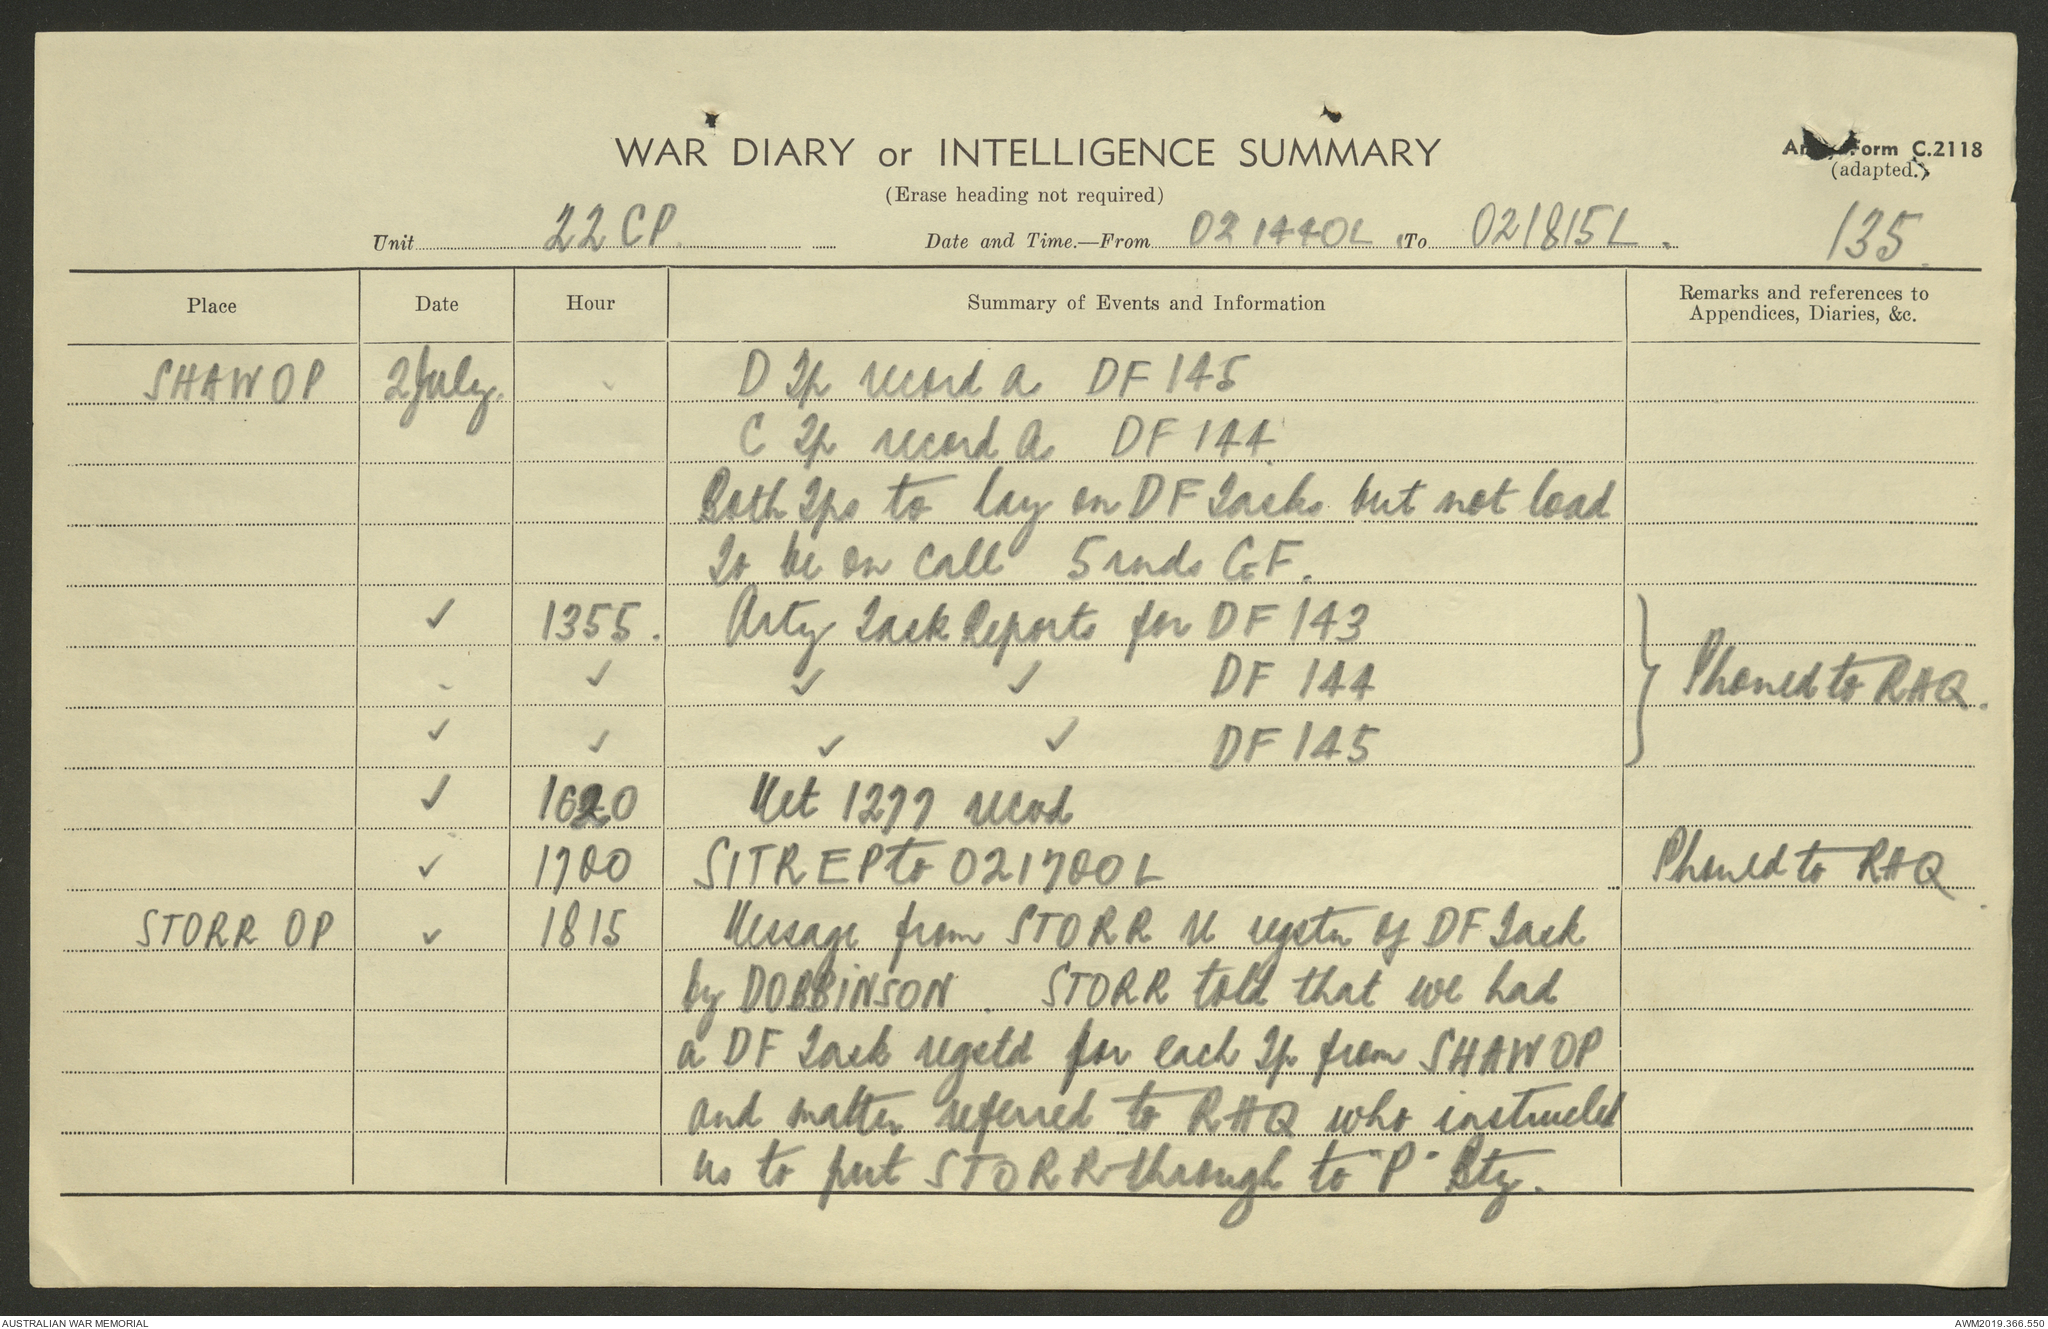 WAR DIARY or INTELLIGENCE SUMMARY
Army Form C.2118
(adapted.)
(Erase heading not required)
Unit 22 CP. Date and Time.—From 021440L To 021815L. 135.
Place Date Hour Summary of Events and Information Remarks and references to
Appendices, Diaries, &c.
SHAW OP 2 July. D Tp record a DF 145
C Tp record a DF 144
Both Tps to lay on DF Tasks but not load
To be on call 5 rnds G.F.
✓ 1355. Arty Task Reports for DF 143
✓ ✓ ✓ DF 144 } Phoned to RHQ.
✓ ✓ ✓ ✓ DF 145
✓ 1620 Met 1277 recod
✓ 1700 SITREP to 021700L Phoned to RHQ
STORR OP ✓ 1815 Message from STORR re regstn of DF Task
by DOBBINSON. STORR told that we had
a DF Task regstd for each Tp from SHAW OP
and matter referred to RHQ who instructed
us to put STORR through to "P" Bty.
AUSTRALIAN WAR MEMORIAL
AWM2019.366.550